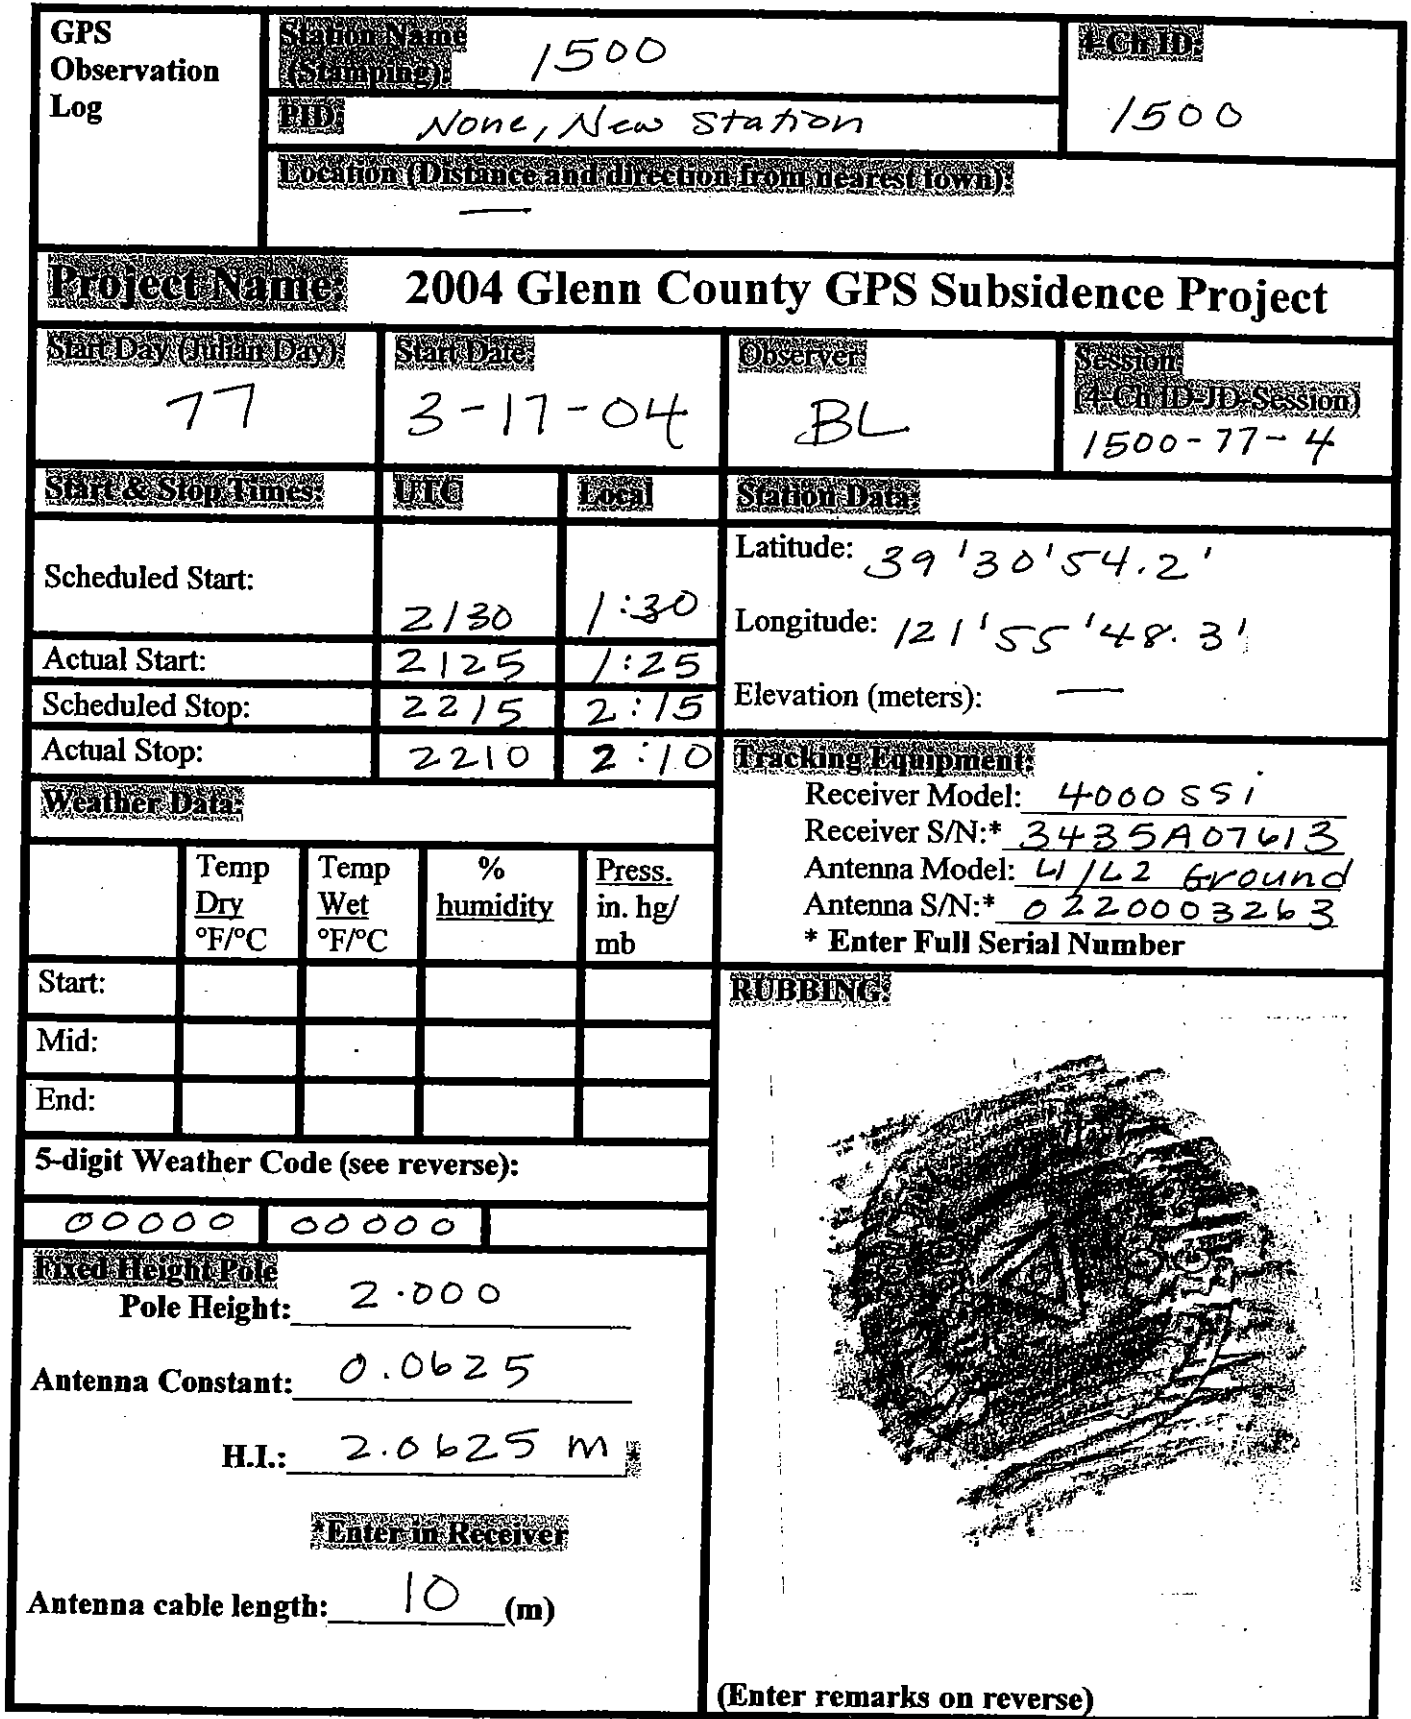 GPS Observation Log
Station Name (Stamping): 1500
4-Ch ID: 1500
PID: None, New Station
Location (Distance and direction from nearest town):
—
Project Name: 2004 Glenn County GPS Subsidence Project
Start Day (Julian Day): 77
Start Date: 3-17-04
Observer BL
Session (4-Ch ID-JD-Session)
1500-77-4
Start & Stop Times: UTC Local
Scheduled Start: 2130 1:30
Actual Start: 2125 1:25
Scheduled Stop: 2215 2:15
Actual Stop: 2210 2:10
Station Data:
Latitude: 39'30'54.2'
Longitude: 121'55'48.3'
Elevation (meters): —
Tracking Equipment:
Receiver Model: 4000 SSi
Receiver S/N:* 3435A07613
Antenna Model: L1/L2 Ground
Antenna S/N:* 0220003263
* Enter Full Serial Number
Weather Data:
Temp Dry °F/°C
Temp Wet °F/°C
% humidity
Press. in. hg/ mb
Start:
Mid:
End:
5-digit Weather Code (see reverse):
00000 00000
Fixed Height Pole
Pole Height: 2.000
Antenna Constant: 0.0625
H.I.: 2.0625 m *
*Enter in Receiver
Antenna cable length: 10 (m)
RUBBING:
(Enter remarks on reverse)